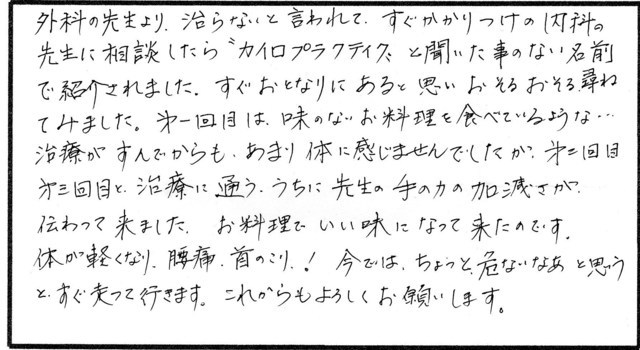 外科の先生より、治らないと言われて、すぐかかりつけの内科の
先生に相談したら“カイロプラクティク、と聞いた事のない名前
で紹介されました。すぐおとなりにあると思いおそるおそる尋ね
てみました。第一回目は、味のないお料理を食べているような…
治療がすんでからも、あまり体に感じませんでしたが、第二回目
第三回目と、治療に通う、うちに先生の手の力の加減さが、
伝わって来ました。お料理でいい味になって来たのです。
体が軽くなり、腰痛、首のこり、！今では、ちょっと、危ないなあと思う
と、すぐ走って行きます。これからもよろしくお願いします。